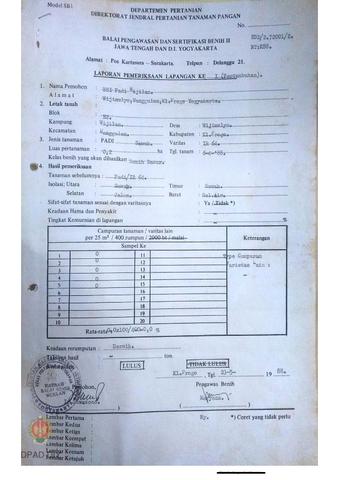 Model SB1
DEPARTEMEN PERTANIAN
DIREKTORAT JENDRAL PERTANIAN TANAMAN PANGAN
No.
BALAI PENGAWASAN DAN SERTIFIKASI BENIH II
JAWA TENGAH DAN D.I. YOGYAKARTA
Alamat : Pos Kartasura – Surakarta. Telpun : Delanggu 21.
LAPORAN PEMERIKSAAN LAPANGAN KE I (Pertumbuhan).
1. Nama Pemohon : BBI Padi Wijilan.
Alamat : Wijimulyo, Nanggulan, Kl. Progo Yogyakarta.
2. Letak tanah
Blok : XI.
Kampung : Wijilan. Desa : Wijimulyo.
Kecamatan : Nanggulan. Kabupaten : Kl. Progo.
3. Jenis tanaman : PADI Sawah. Varitas : IR 64.
Luas pertanaman : 0,2 ha Tgl. tanam :
Kelas benih yang akan dihasilkan
4. Hasil pemeriksaan
Tanaman sebelumnya : Padi/IR 64.
Isolasi; Utara : Sawah. Timur : Sawah.
Selatan : Jalan. Barat :
Sifat-sifat tanaman sesuai dengan varitasnya : Ya /Tidak *)
Keadaan Hama dan Penyakit :
Tingkat Kemurnian di lapangan : %
Campuran tanaman / varitas lain
per 25 m² / 400 rumpun / 2000 bt / malai
Keterangan
Sampel Ke
1 0 11
2 0 12
3 0 13
4 0 14
5 0 15
6 16
7 17
8 18
9 19
10 20
Type Campuran
Varietas lain :
Rata-rata
Keadaan rerumputan : Bersih.
Taksiran hasil : – ton
LULUS
TIDAK LULUS
Kl. Progo, Tgl 21-5- 19 88.
Pemohon, Pengawas Benih
*) Coret yang tidak perlu
Lembar Pertama
Lembar Kedua
Lembar Ketiga
Lembar Keempat
Lembar Kelima
Lembar Keenam
Lembar Ketujuh
DPAD